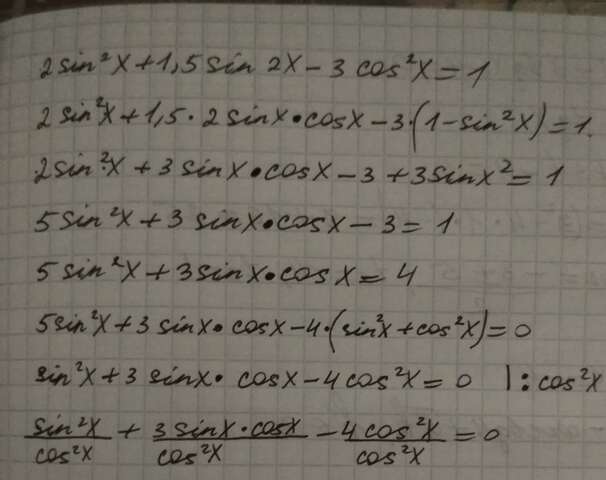 2sin²x+1,5sin 2x-3cos²x=1
2sin²x+1,5·2sinx·cosx-3·(1-sin²x)=1.
2sin²x+3sinx·cosx-3+3sinx²=1
5sin²x+3sinx·cosx-3=1
5sin²x+3sinx·cosx=4
5sin²x+3sinx·cosx-4·(sin²x+cos²x)=0
sin²x+3sinx·cosx-4cos²x=0 |:cos²x
sin²x/cos²x + 3sinx·cosx/cos²x - 4cos²x/cos²x = 0